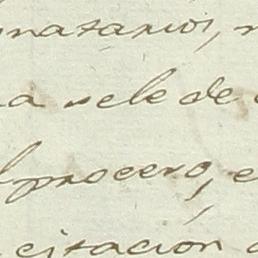 natarios,
a sele de
lproceso, e
citación